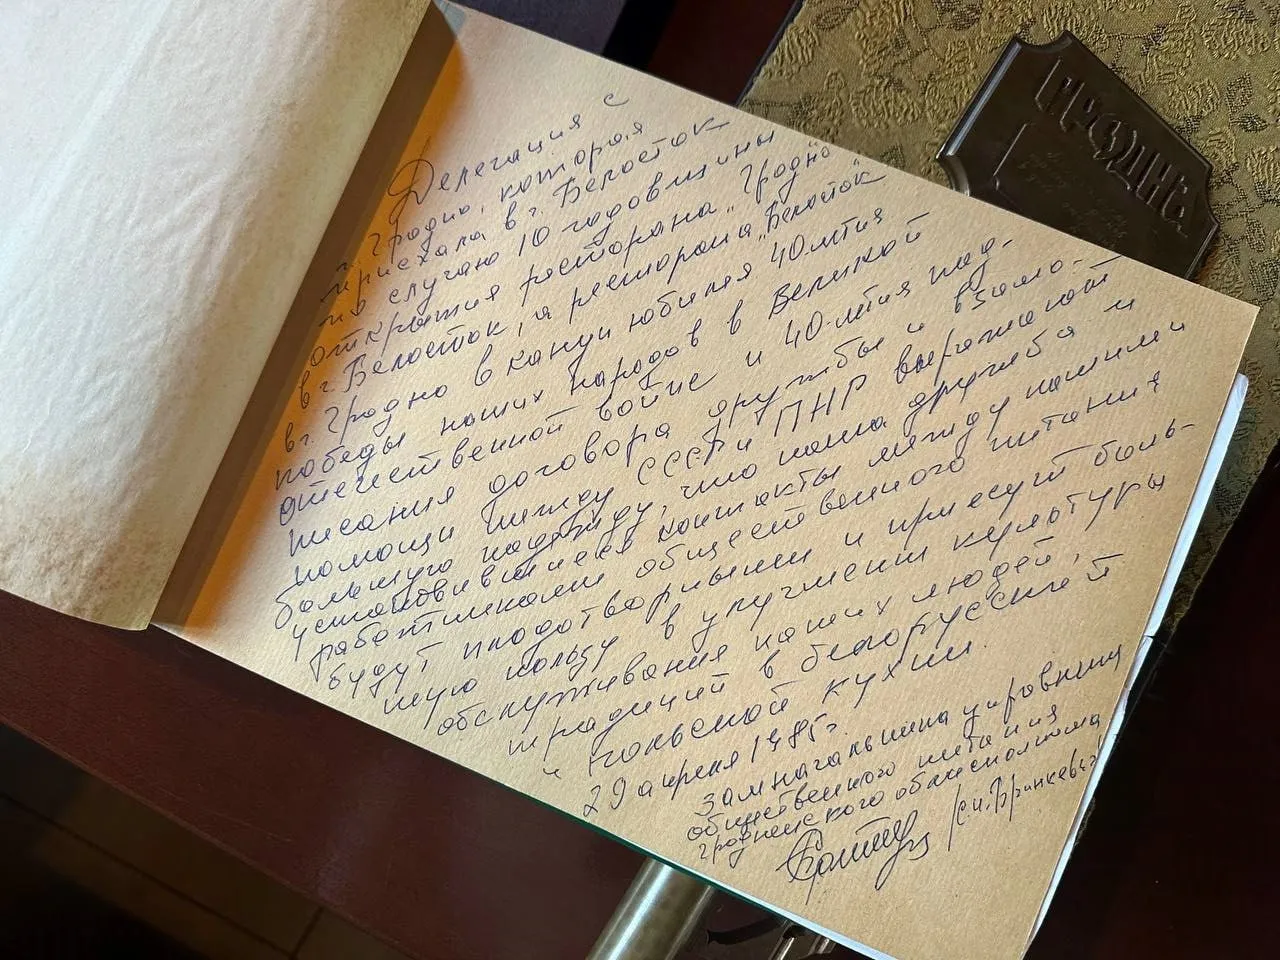 Делегация с
г. Гродно, которая
приехала в г. Белосток
по случаю 10 годовщины
открытия ресторана „Гродно
в г. Белосток, а ресторана „Белосток"
в г. Гродно в канун юбилея 40-летия
победы наших народов в Великой
отечественной войне и 40-летия под-
писания договора дружбы и взаимо-
помощи между СССР и ПНР выражают
большую надежду, что наша дружба и
установившиеся контакты между нашими
работниками общественного питания
будут плодотворными и принесут боль-
шую пользу в улучшении культуры
обслуживания наших людей,
традиций в белорусской
и польской кухни.
29 апреля 1985 г.
зам начальника управления
общественного питания
Гродненского облисполкома
ГРОДНО